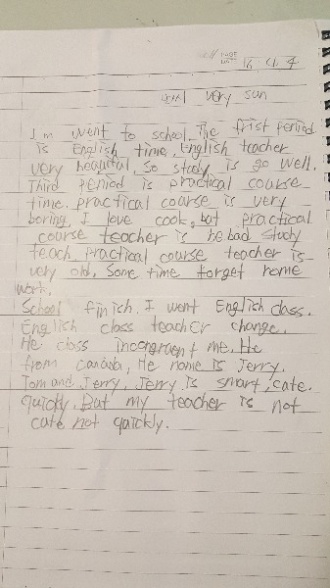 DATE
16. 4. 4
very sun
I m went to school. The frist period
is English time. English teacher
very beauital, so study is go well.
Third period is practical course
time. practical coarse is very
boring. I love cook, but practical
course teacher is he bad study
teach. practical course teacher is
very old. Some time forget home
work.
School finish. I went English class.
English class teacher change.
He class incongruent me. He
from canada, He name is Jerry.
Tom and Jerry, Jerry is smart, cute.
quickly. But my teacher is not
cute not quickly.